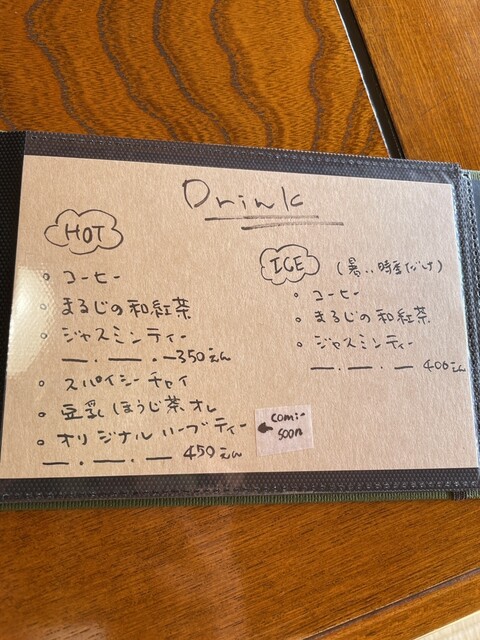 Drink
HOT
。コーヒー
。まるじの和紅茶
。ジャスミンティー
ー．ー．ー350えん
。スパイシーチャイ
。豆乳ほうじ茶オレ
。オリジナルハーブティー
ー．ー．ー 450えん
comi-
soon
ICE (暑い時季だけ)
。コーヒー
。まるじの和紅茶
。ジャスミンティー
ー．ー．ー 400えん